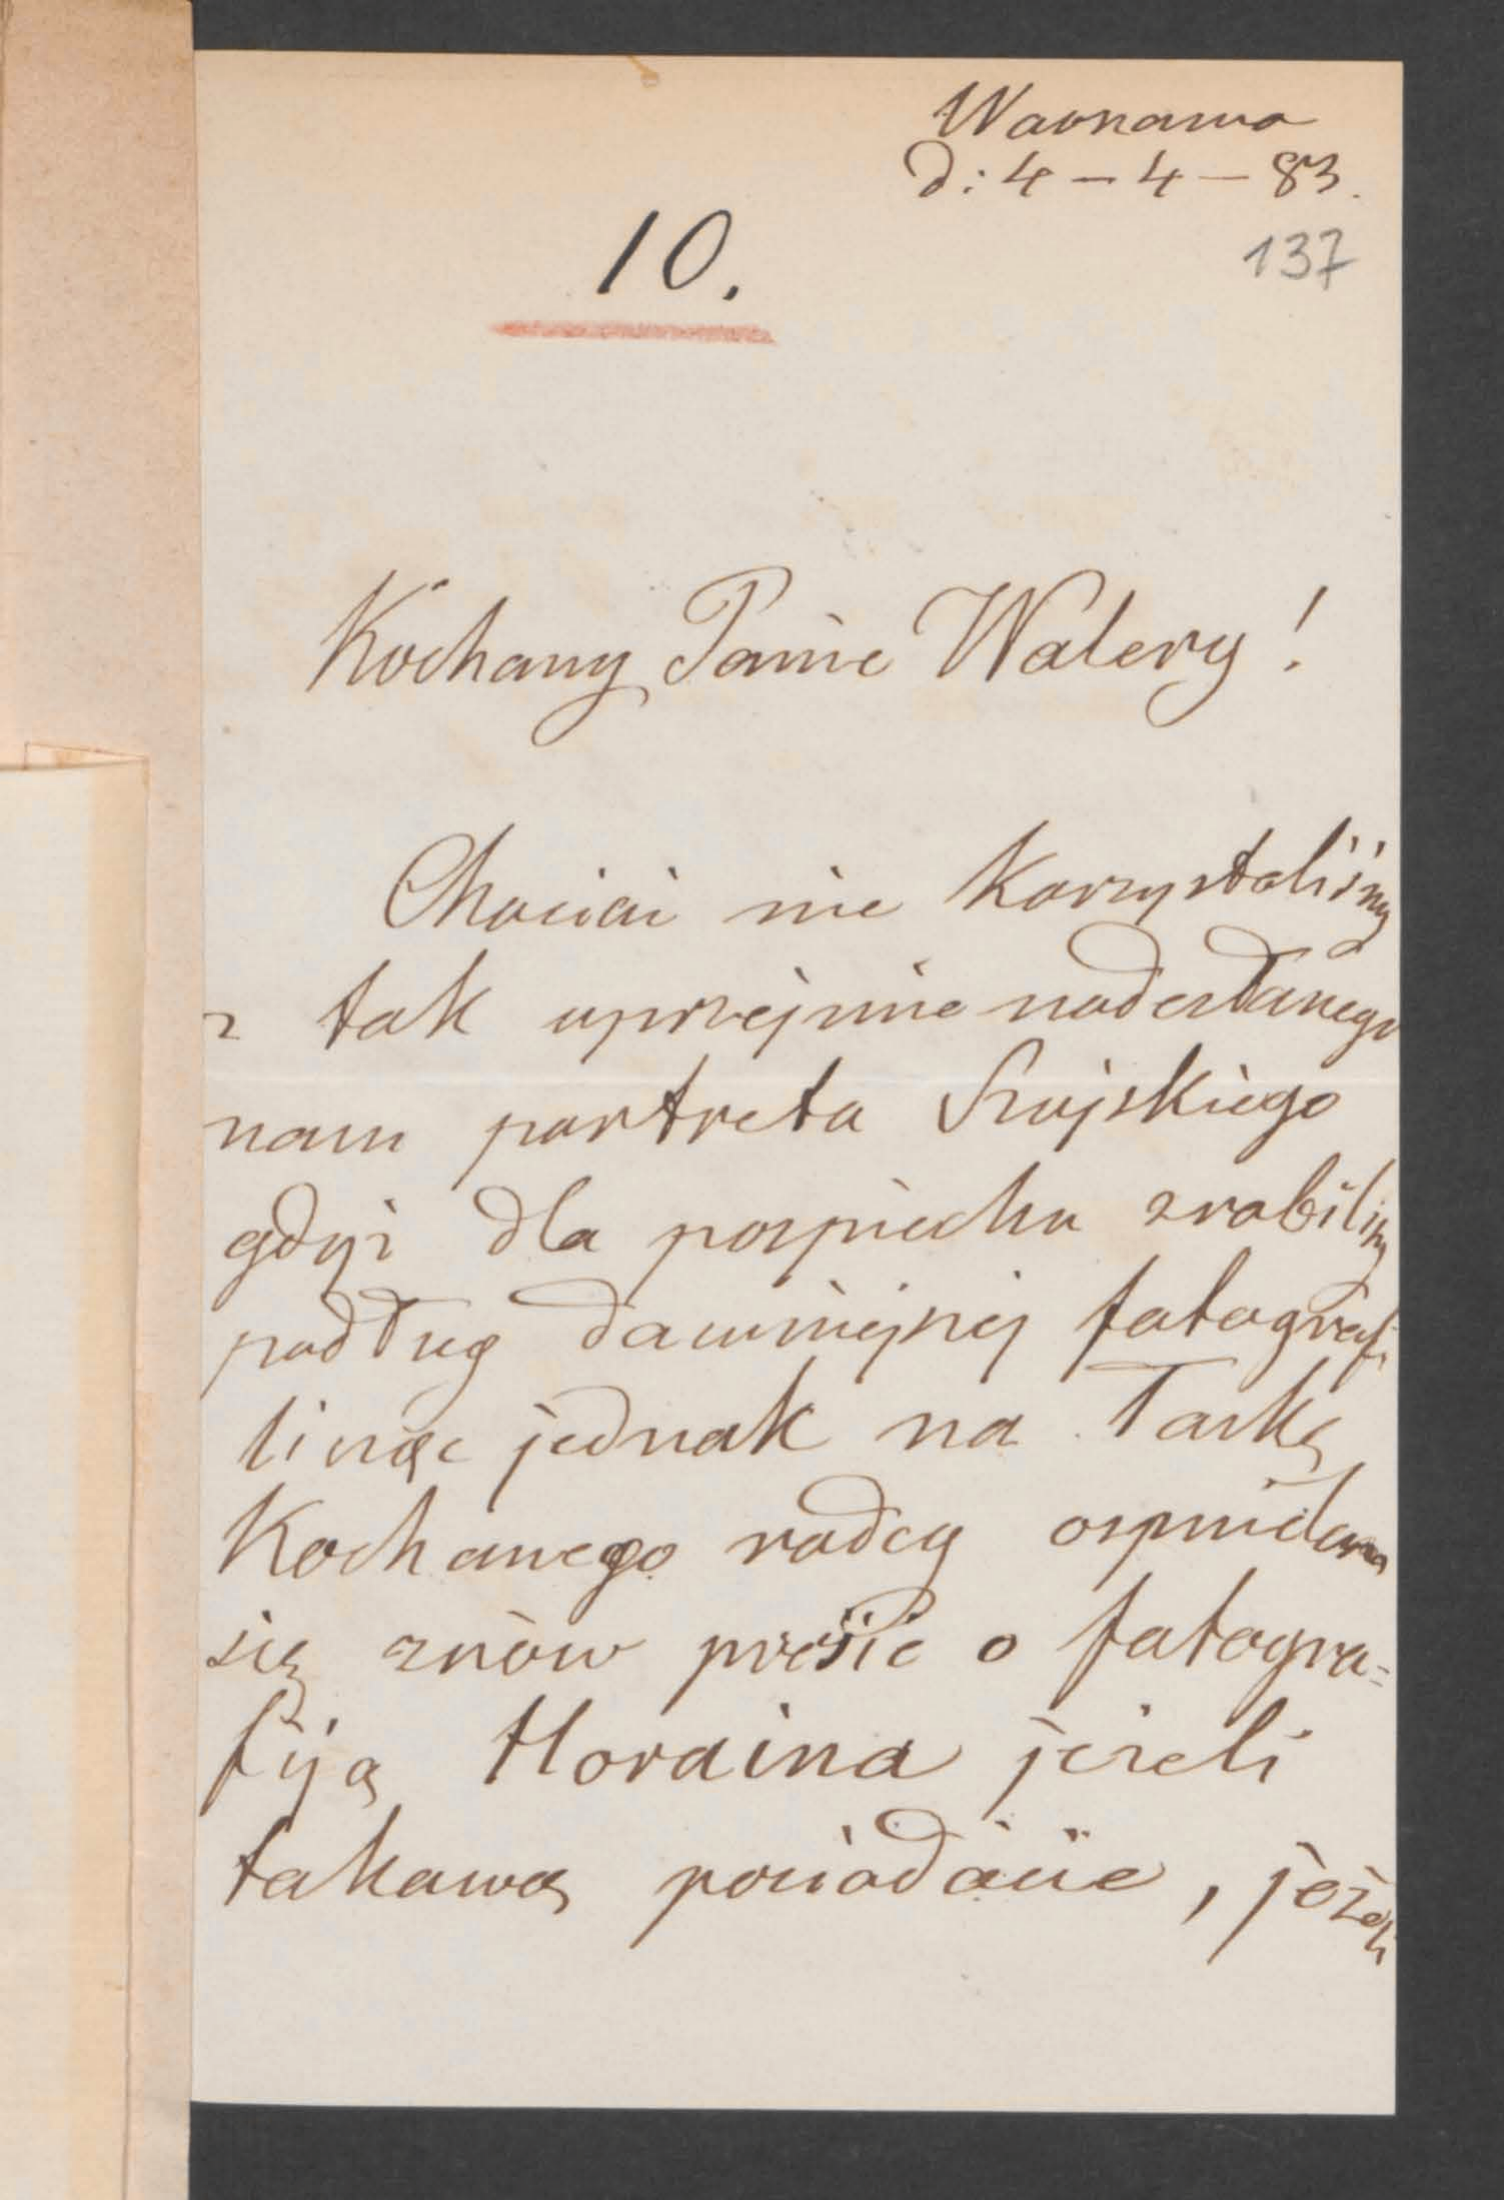 Warszawa
d: 4 – 4 – 83.
137
10.
Kochany Panie Walery!
Chociaż nie Korzystaliśmy
z tak uprzejmie nadesłanego
nam portreta Szujskiego
gdyż dla pospiechu zrobiliśmy
podług dawniejszej fotografi
licząc jednak na Łaskę
Kochanego radcy ośmielam
się znów prosić o fotogra=
fiją Horaina jeżeli
takową posiadacie, jeżeli